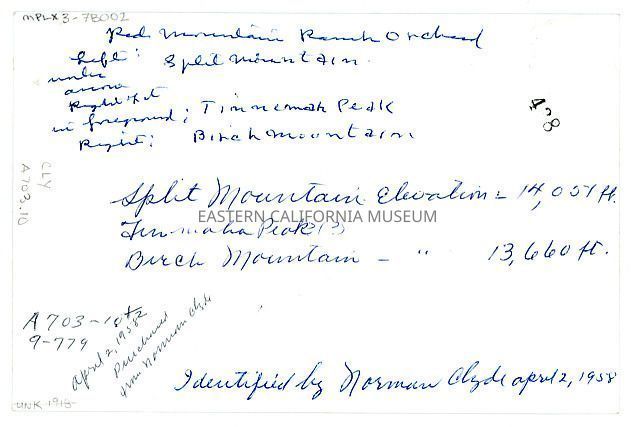 MPLX 3-7B002
Red Mountain Ranch Orchard
Left: Split Mountain.
under
arrow
Right
in foreground; Tinnemah Peak
Right: Birch Mountain
CLY
A703-10
Split Mountain Elevation = 14,051 ft.
EASTERN CALIFORNIA MUSEUM
Tinemaha Peak (?)
Birch Mountain - " 13,660 ft.
A703-10
9-779
April 2, 1958
Purchased
from Norman Clyde
Identified by Norman Clyde april 2, 1958
UNK 1918-